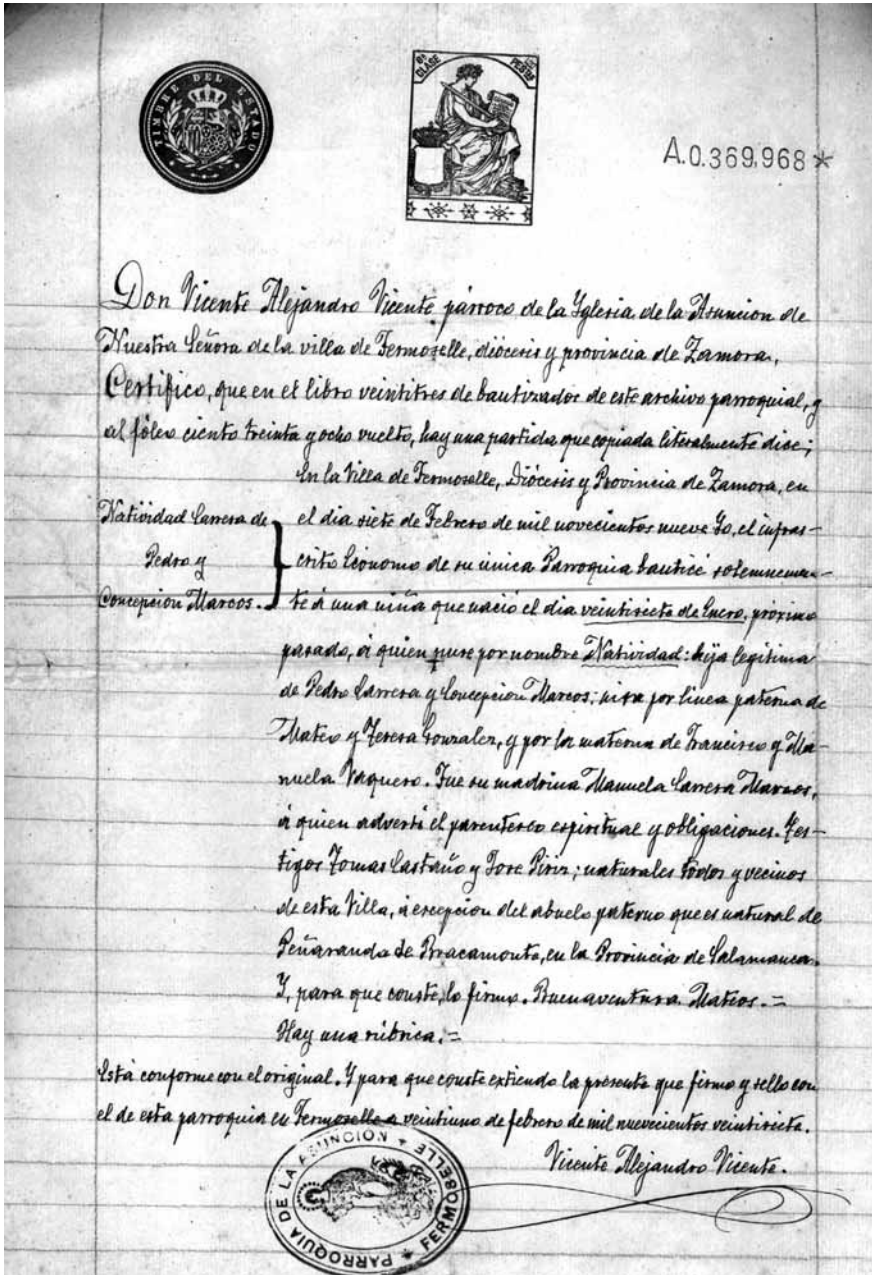 TIMBRE DEL ESTADO
8ª CLASE
PESETAS
A.0.369,968*
Don Vicente Alejandro Vicente párroco de la Yglesia de la Asuncion de
Nuestra Señora de la villa de Fermoselle, diócesis y provincia de Zamora,
Certifico, que en el libro veintitres de bautizados de este archivo parroquial, y
al fóleo ciento treinta y ocho vuelto, hay una partida que copiada literalmente dice;
En la Villa de Fermoselle, Diócesis y Provincia de Zamora, en
Natividad Carrera de
Pedro y
Concepcion Marcos.
el dia siete de Febrero de mil novecientos nueve Yo, el infras-
crito Ecónomo de su única Parroquia bauticé solemnemen-
te á una niña que nació el dia veintisiete de Enero, próximo
pasado, á quien puse por nombre Natividad: hija legítima
de Pedro Carrera y Concepcion Marcos; nieta por linea paterna de
Mateo y Teresa Gonzalez, y por la materna de Francisco y Ma-
nuela Vaquero. Fue su madrina Manuela Carrera Marcos,
á quien advertí el parentesco espiritual y obligaciones. Tes-
tigos Tomas Castaño y Jose Piriz; naturales todos y vecinos
de esta Villa, á escepcion del abuelo paterno que es natural de
Peñaranda de Bracamonte, en la Provincia de Salamanca.
Y, para que conste, lo firmo. Buenaventura Mateos.=
Hay una rúbrica.=
Está conforme con el original. Y para que conste extiendo la presente que firmo y sello con
el de esta parroquia en Fermoselle a veintiuno de febrero de mil nuevecientos veintisiete.
Vicente Alejandro Vicente.
PARROQUIA DE LA ASUNCION * FERMOSELLE *